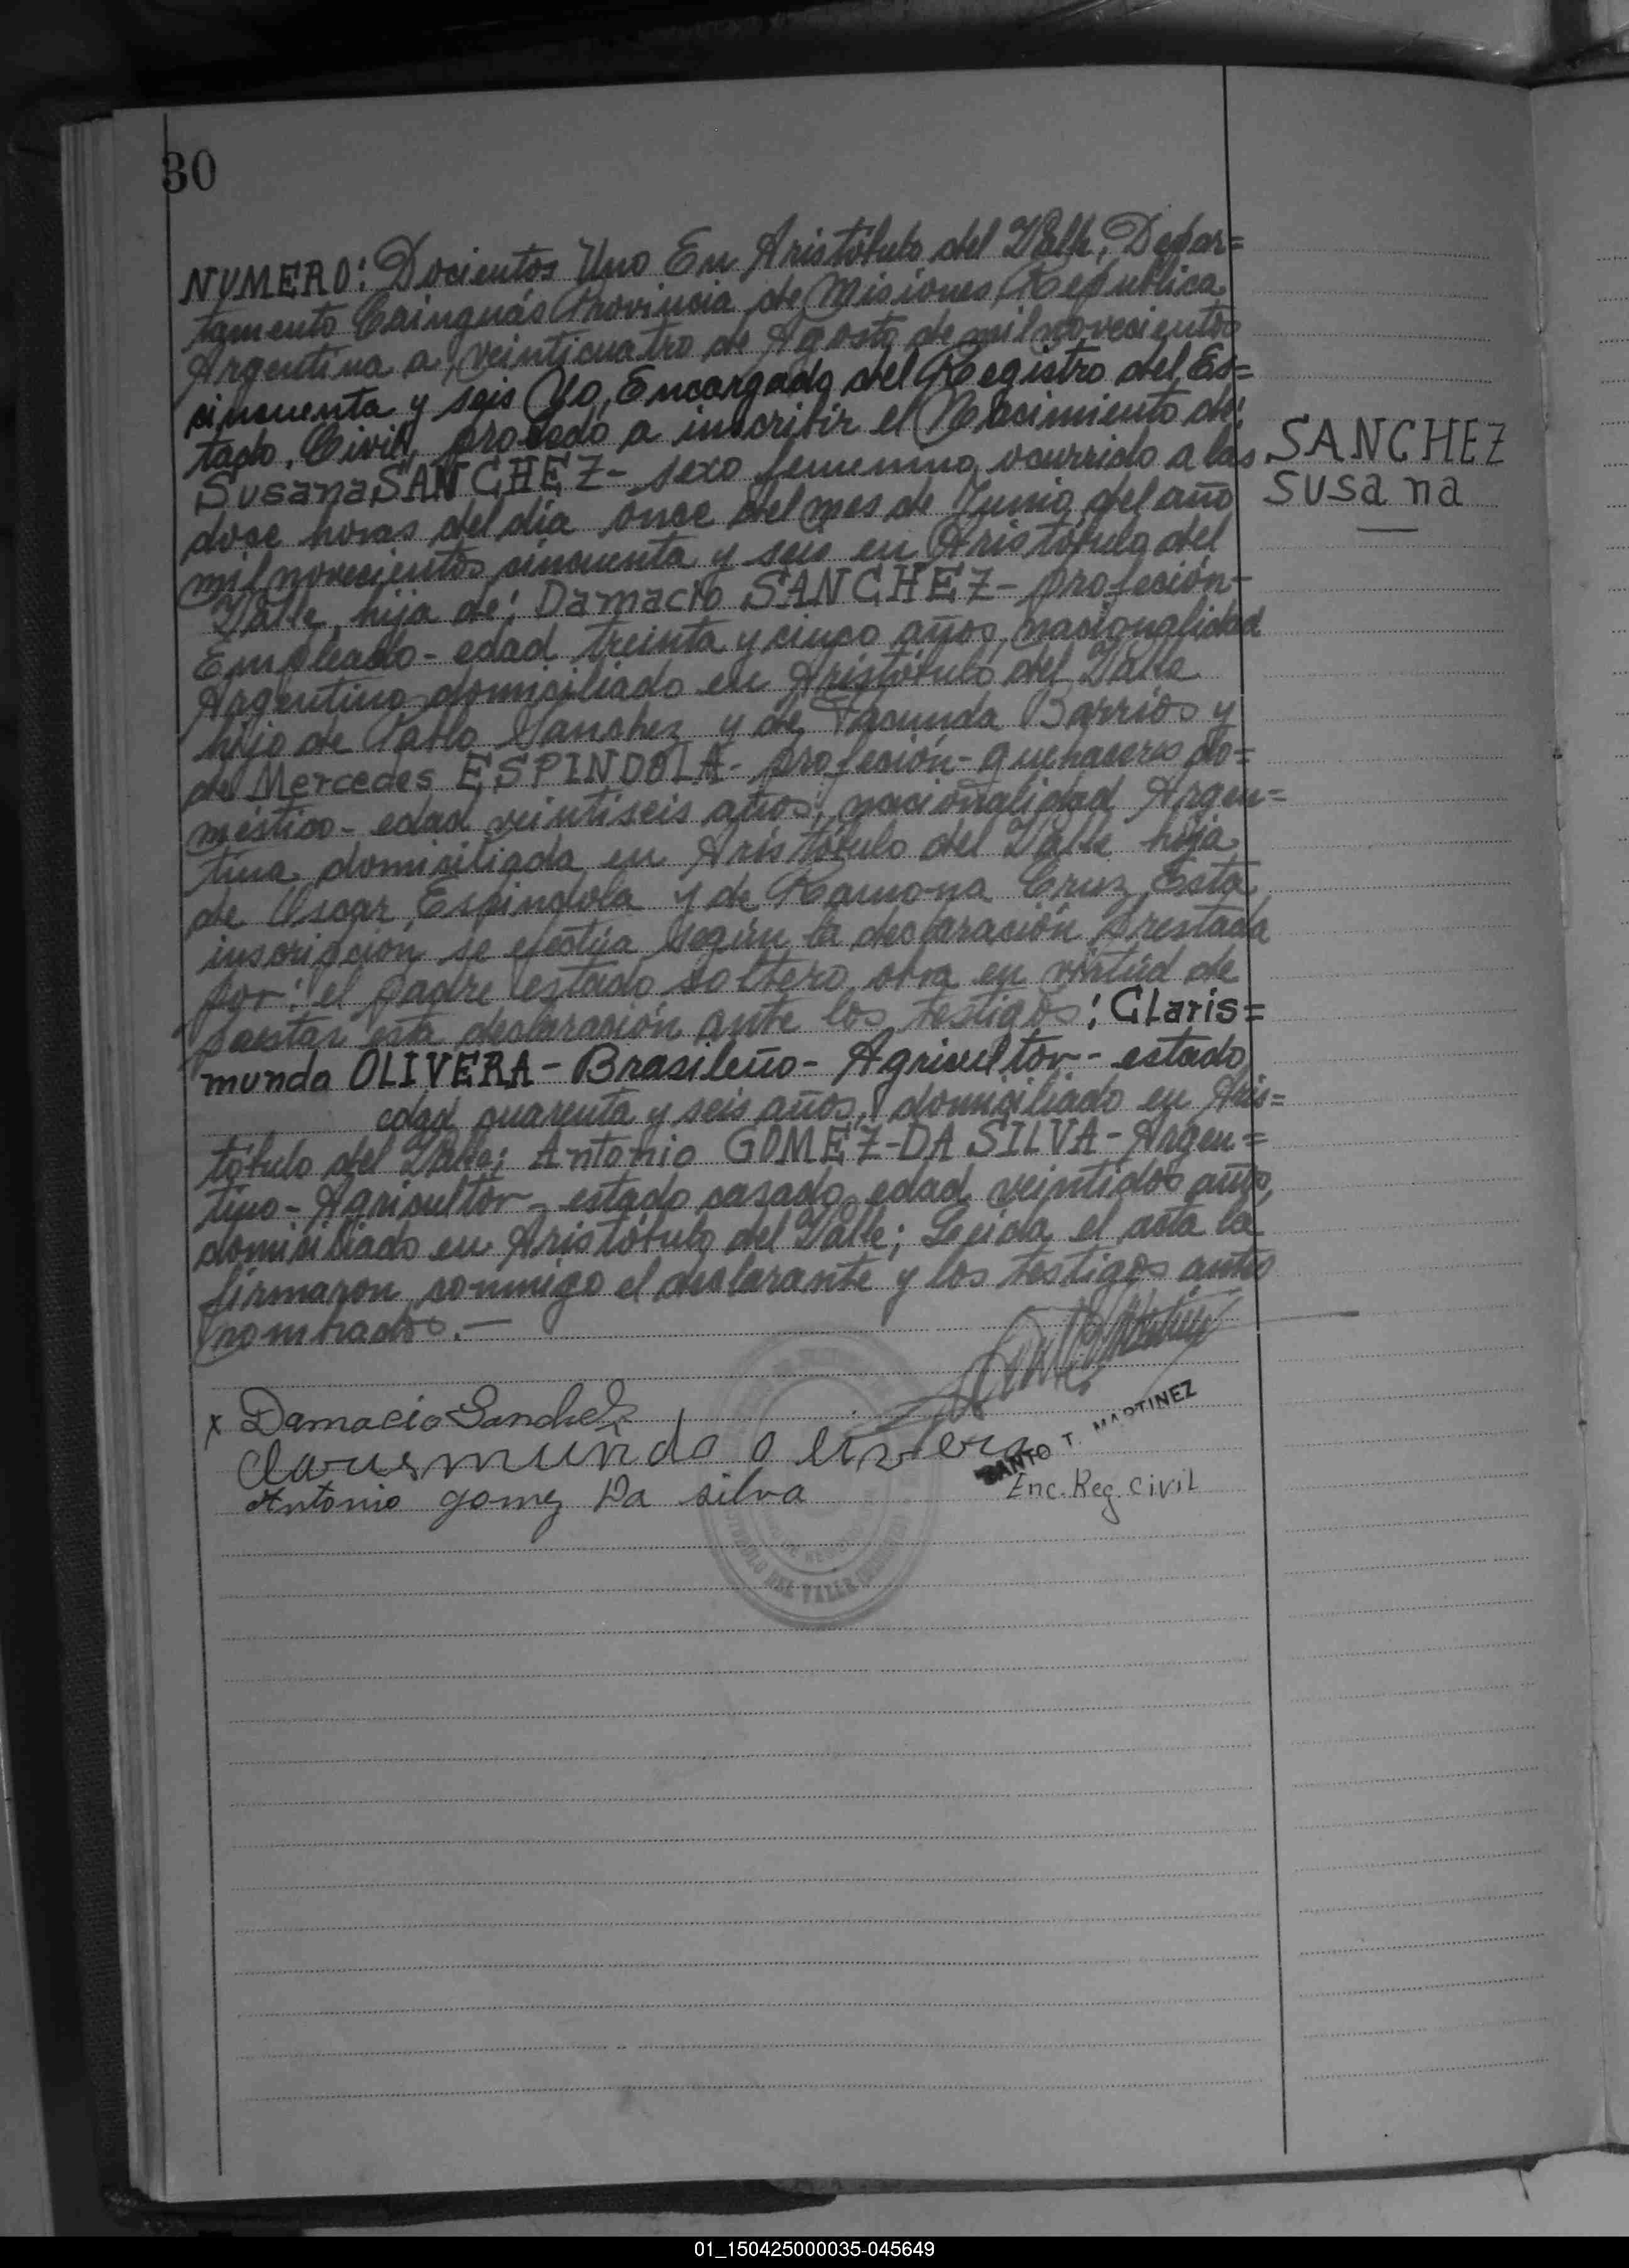 30
NUMERO: Docientos Uno En Aristóbulo del Valle, Depar=
tamento Cainguás Provincia de Misiones, Republica
Argentina a veinticuatro de Agosto de mil novecientos
cincuenta y seis Yo, Encargado del Registro del Es=
tado, Civil, procedo a inscribir el Nacimiento de:
Susana SANCHEZ - sexo femenino, ocurrido a las
SANCHEZ
Susana
doce horas del día once del mes de Junio del año
mil novecientos cincuenta y seis en Aristóbulo del
Valle, hija de: Damacio SANCHEZ - profeción-
Empleado - edad treinta y cinco años, nacionalidad
Argentino domiciliado en Aristóbulo del Valle
hijo de Pablo Sanchez y de Facunda Barrios y
de Mercedes ESPINDOLA - profeción - quehaceres do=
méstico - edad veintiseis años, nacionalidad Argen=
tina domiciliada en Aristóbulo del Valle hija
de Oscar Espindola y de Ramona Cruz, Esta
inscripción se efectúa según la declaración prestada
por: el padre estado soltero, obra en virtúd de
esta declaración ante los testigos: Claris=
munda OLIVERA - Brasileño - Agricultor - estado
edad cuarenta y seis años, domiciliado en Aris=
tóbulo del Valle; Antonio GOMEZ-DA SILVA - Argen=
tino - Agricultor - estado casado, edad veintidos años,
domiciliado en Aristóbulo del Valle; Leida el acta la
firmaron conmigo el declarante y los testigos antes
nombrados. —
x Damacio Sanchez
Clarismundo olivera
SANTO T. MARTINEZ
Antonio gomez Da silva
Enc. Reg. Civil
DEL VALLE
01_150425000035-045649